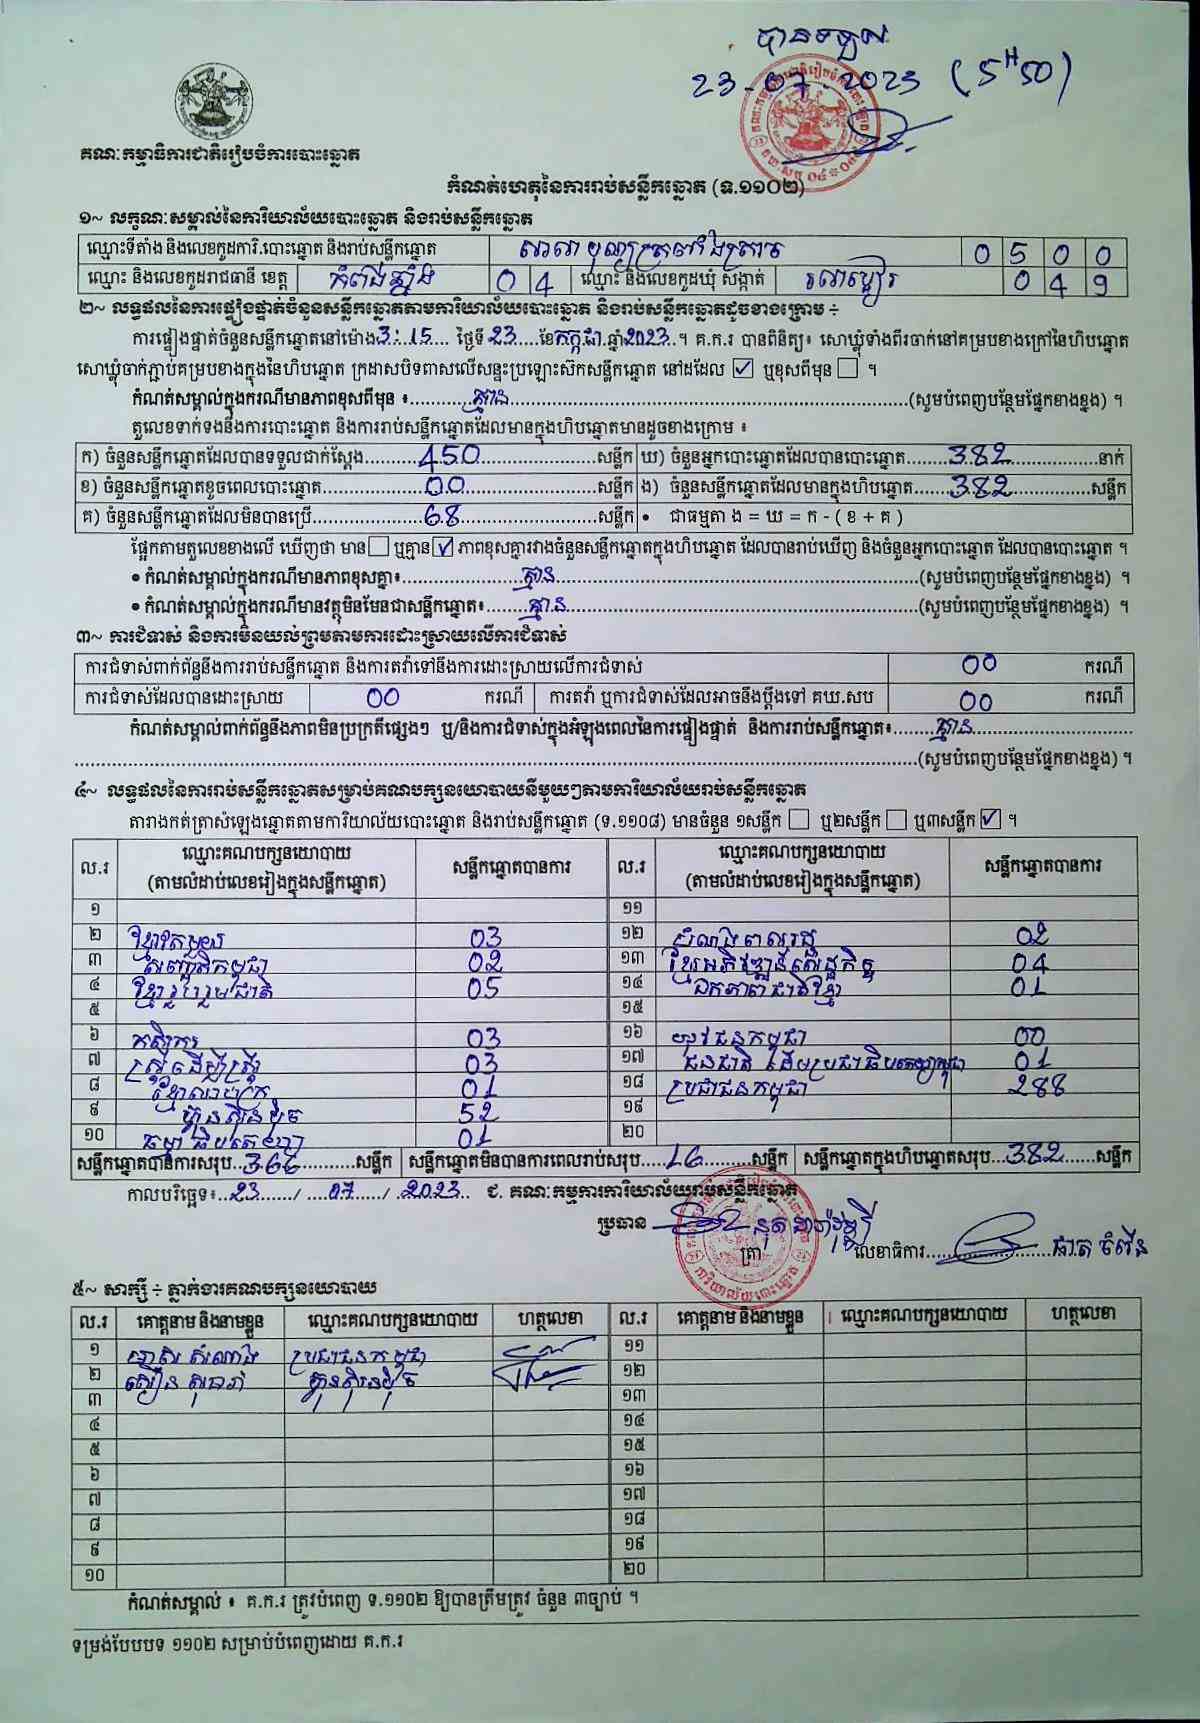 បានទទួល
23-07-2023 (5H50)
គណៈកម្មាធិការជាតិរៀបចំការបោះឆ្នោត
កំណត់ហេតុនៃការរាប់សន្លឹកឆ្នោត (ទ.១១០២)
១~ លក្ខណៈសម្គាល់នៃការិយាល័យបោះឆ្នោត និងរាប់សន្លឹកឆ្នោត
ឈ្មោះទីតាំង និងលេខកូដការិ.បោះឆ្នោត និងរាប់សន្លឹកឆ្នោត 0 5 0 0
ឈ្មោះ និងលេខកូដរាជធានី ខេត្ត កំពង់ឆ្នាំង 0 4 ឈ្មោះ និងលេខកូដឃុំ សង្កាត់ រលាប្អៀរ 0 4 9
២~ លទ្ធផលនៃការផ្ទៀងផ្ទាត់ចំនួនសន្លឹកឆ្នោតតាមការិយាល័យបោះឆ្នោត និងរាប់សន្លឹកឆ្នោតដូចខាងក្រោម ÷
ការផ្ទៀងផ្ទាត់ចំនួនសន្លឹកឆ្នោតនៅម៉ោង 3:15 ថ្ងៃទី 23 ខែ កក្កដា ឆ្នាំ 2023 ។ គ.ក.រ បានពិនិត្យ៖ សោឃ្លុំទាំងពីរចាក់នៅគម្របខាងក្រៅនៃហិបឆ្នោត
សោឃ្លុំចាក់ភ្ជាប់គម្របខាងក្នុងនៃហិបឆ្នោត ក្រដាសបិទពាសលើសន្ទះប្រឡោះស៊កសន្លឹកឆ្នោត នៅដដែល ☑ ឬខុសពីមុន ☐ ។
កំណត់សម្គាល់ក្នុងករណីមានភាពខុសពីមុន ៖ គ្មាន (សូមបំពេញបន្ថែមផ្នែកខាងខ្នង) ។
តួលេខទាក់ទងនឹងការបោះឆ្នោត និងការរាប់សន្លឹកឆ្នោតដែលមានក្នុងហិបឆ្នោតមានដូចខាងក្រោម ៖
ក) ចំនួនសន្លឹកឆ្នោតដែលបានទទួលជាក់ស្តែង 450 សន្លឹក ឃ) ចំនួនអ្នកបោះឆ្នោតដែលបានបោះឆ្នោត 382 នាក់
ខ) ចំនួនសន្លឹកឆ្នោតខូចពេលបោះឆ្នោត 00 សន្លឹក ង) ចំនួនសន្លឹកឆ្នោតដែលមានក្នុងហិបឆ្នោត 382 សន្លឹក
គ) ចំនួនសន្លឹកឆ្នោតដែលមិនបានប្រើ 68 សន្លឹក • ជាធម្មតា ង = ឃ = ក - ( ខ + គ )
ផ្អែកតាមតួលេខខាងលើ ឃើញថា មាន ☐ ឬគ្មាន ☑ ភាពខុសគ្នារវាងចំនួនសន្លឹកឆ្នោតក្នុងហិបឆ្នោត ដែលបានរាប់ឃើញ និងចំនួនអ្នកបោះឆ្នោត ដែលបានបោះឆ្នោត ។
• កំណត់សម្គាល់ក្នុងករណីមានភាពខុសគ្នា៖ គ្មាន (សូមបំពេញបន្ថែមផ្នែកខាងខ្នង) ។
• កំណត់សម្គាល់ក្នុងករណីមានវត្ថុមិនមែនជាសន្លឹកឆ្នោត៖ គ្មាន (សូមបំពេញបន្ថែមផ្នែកខាងខ្នង) ។
៣~ ការជំទាស់ និងការមិនយល់ព្រមតាមការដោះស្រាយលើការជំទាស់
ការជំទាស់ពាក់ព័ន្ធនឹងការរាប់សន្លឹកឆ្នោត និងការតវ៉ាទៅនឹងការដោះស្រាយលើការជំទាស់ 00 ករណី
ការជំទាស់ដែលបានដោះស្រាយ 00 ករណី ការតវ៉ា ឬការជំទាស់ដែលអាចនឹងប្តឹងទៅ គឃ.សប 00 ករណី
កំណត់សម្គាល់ពាក់ព័ន្ធនឹងភាពមិនប្រក្រតីផ្សេងៗ ឬ/និងការជំទាស់ក្នុងអំឡុងពេលនៃការផ្ទៀងផ្ទាត់ និងការរាប់សន្លឹកឆ្នោត៖ គ្មាន
(សូមបំពេញបន្ថែមផ្នែកខាងខ្នង) ។
៤~ លទ្ធផលនៃការរាប់សន្លឹកឆ្នោតសម្រាប់គណបក្សនយោបាយនីមួយៗតាមការិយាល័យរាប់សន្លឹកឆ្នោត
តារាងកត់ត្រាសំឡេងឆ្នោតតាមការិយាល័យបោះឆ្នោត និងរាប់សន្លឹកឆ្នោត (ទ.១១០៨) មានចំនួន ១សន្លឹក ☐ ឬ២សន្លឹក ☐ ឬ៣សន្លឹក ☑ ។
ល.រ ឈ្មោះគណបក្សនយោបាយ (តាមលំដាប់លេខរៀងក្នុងសន្លឹកឆ្នោត) សន្លឹកឆ្នោតបានការ ល.រ ឈ្មោះគណបក្សនយោបាយ (តាមលំដាប់លេខរៀងក្នុងសន្លឹកឆ្នោត) សន្លឹកឆ្នោតបានការ
១ ១១
២ ខ្មែរតែមួយ 03 ១២ សំណាញ់ពលរដ្ឋ 02
៣ សញ្ជាតិកម្ពុជា 02 ១៣ ខ្មែរអភិវឌ្ឍន៍សេដ្ឋកិច្ច 04
៤ ខ្មែររួបរួមជាតិ 05 ១៤ ឯកភាពជាតិខ្មែរ 01
៥ ១៥
៦ កសិករ 03 ១៦ យុវជនកម្ពុជា 00
៧ ស្ត្រីដើម្បីស្ត្រី 03 ១៧ ជនជាតិដើមប្រជាធិបតេយ្យកម្ពុជា 01
៨ ខ្មែរឈប់ក្រ 01 ១៨ ប្រជាជនកម្ពុជា 288
៩ ហ៊្វុនស៊ិនប៉ិច 52 ១៩
១០ ធម្មាធិបតេយ្យ 01 ២០
សន្លឹកឆ្នោតបានការសរុប 366 សន្លឹក សន្លឹកឆ្នោតមិនបានការពេលរាប់សរុប 16 សន្លឹក សន្លឹកឆ្នោតក្នុងហិបឆ្នោតសរុប 382 សន្លឹក
កាលបរិច្ឆេទ៖ 23 / 07 / 2023 ជ. គណៈកម្មការការិយាល័យរាប់សន្លឹកឆ្នោត
ប្រធាន
ត្រា លេខាធិការ
៥~ សាក្សី ÷ ភ្នាក់ងារគណបក្សនយោបាយ
ល.រ គោត្តនាម និងនាមខ្លួន ឈ្មោះគណបក្សនយោបាយ ហត្ថលេខា ល.រ គោត្តនាម និងនាមខ្លួន ឈ្មោះគណបក្សនយោបាយ ហត្ថលេខា
១ ប្រជាជនកម្ពុជា ១១
២ ហ៊្វុនស៊ិនប៉ិច ១២
៣ ១៣
៤ ១៤
៥ ១៥
៦ ១៦
៧ ១៧
៨ ១៨
៩ ១៩
១០ ២០
កំណត់សម្គាល់ ៖ គ.ក.រ ត្រូវបំពេញ ទ.១១០២ ឱ្យបានត្រឹមត្រូវ ចំនួន ៣ច្បាប់ ។
ទម្រង់បែបបទ ១១០២ សម្រាប់បំពេញដោយ គ.ក.រ